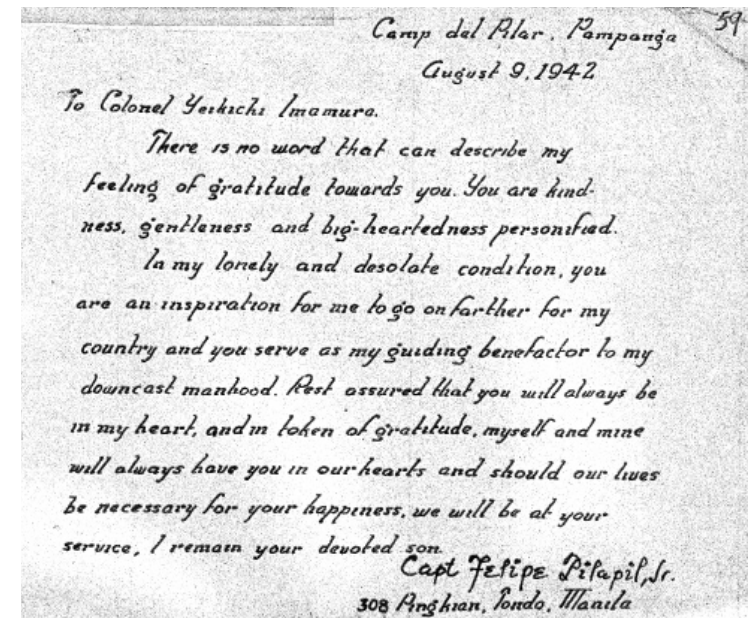 59
Camp del Pilar, Pampanga
August 9, 1942
To Colonel Yeikichi Imamura.
There is no word that can describe my
feeling of gratitude towards you. You are kind-
ness, gentleness and big-heartedness personified.
In my lonely and desolate condition, you
are an inspiration for me to go on farther for my
country and you serve as my guiding benefactor to my
downcast manhood. Rest assured that you will always be
in my heart, and in token of gratitude, myself and mine
will always have you in our hearts and should our lives
be necessary for your happiness, we will be at your
service, I remain your devoted son.
Capt Felipe Pilapil, Jr.
308 Pinghian, Tondo, Manila